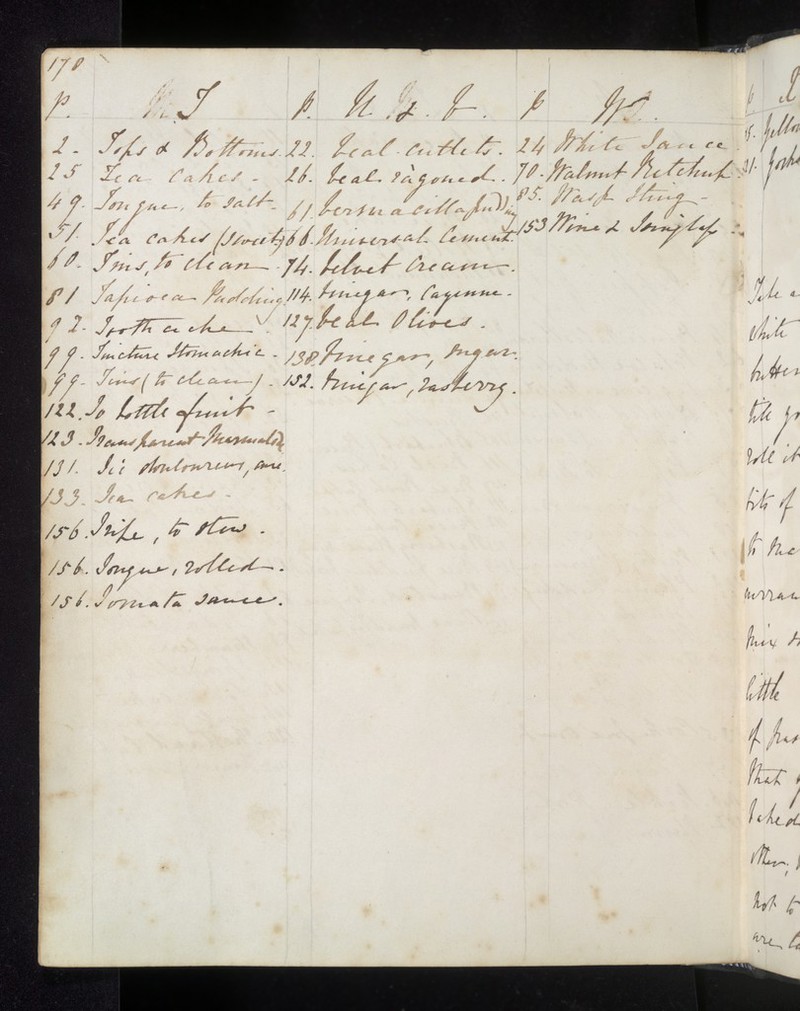 170
p. T
2 - Tops & Bottoms.
25 Tea cakes -
49. Tongue, to salt -
51. Tea cakes (sweet)
60. Tins, to clean -
81 Tapioca Pudding
92. Tooth ache
99. Tincture Stomachic -
99. Tins (to clean) -
122. To bottle fruit -
123. Transparent Marmalade
131. Tic douloureux, cure.
133. Tea cakes -
156. Tripe, to stew -
156. Tongue, rolled -
156. Tomata sauce.
p. U & V.
22. Veal cutlets.
26. Veal ragoued.
61. Vermacilla pudding
66. Universal Cement.
74. Velvet Cream.
114. Vinegar, Cayenne.
127. Veal Olives.
138. Vinegar, sugar.
152. Vinegar, rasberry.
p W
24 White Sauce
70. Walnut Ketchup
85. Wasp Sting -
153 Wine &
p
15. Yellow
31.
Take a
white
butter
till
roll it
bits of
to
mix
little
of
that
baked
other,
not to
are